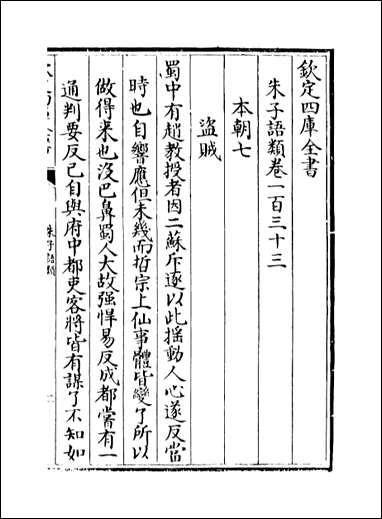 欽定四庫全書
朱子語類卷一百三十三
本朝七
盜賊
蜀中有趙教授者因二蘇斥逐以此搖動人心遂反當
時也自響應但未幾而哲宗上仙事體皆變了所以
做得來也没巴鼻蜀人大故强悍易反成都嘗有一
通判要反已自與府中都吏客將皆有謀了不知如
朱子語類